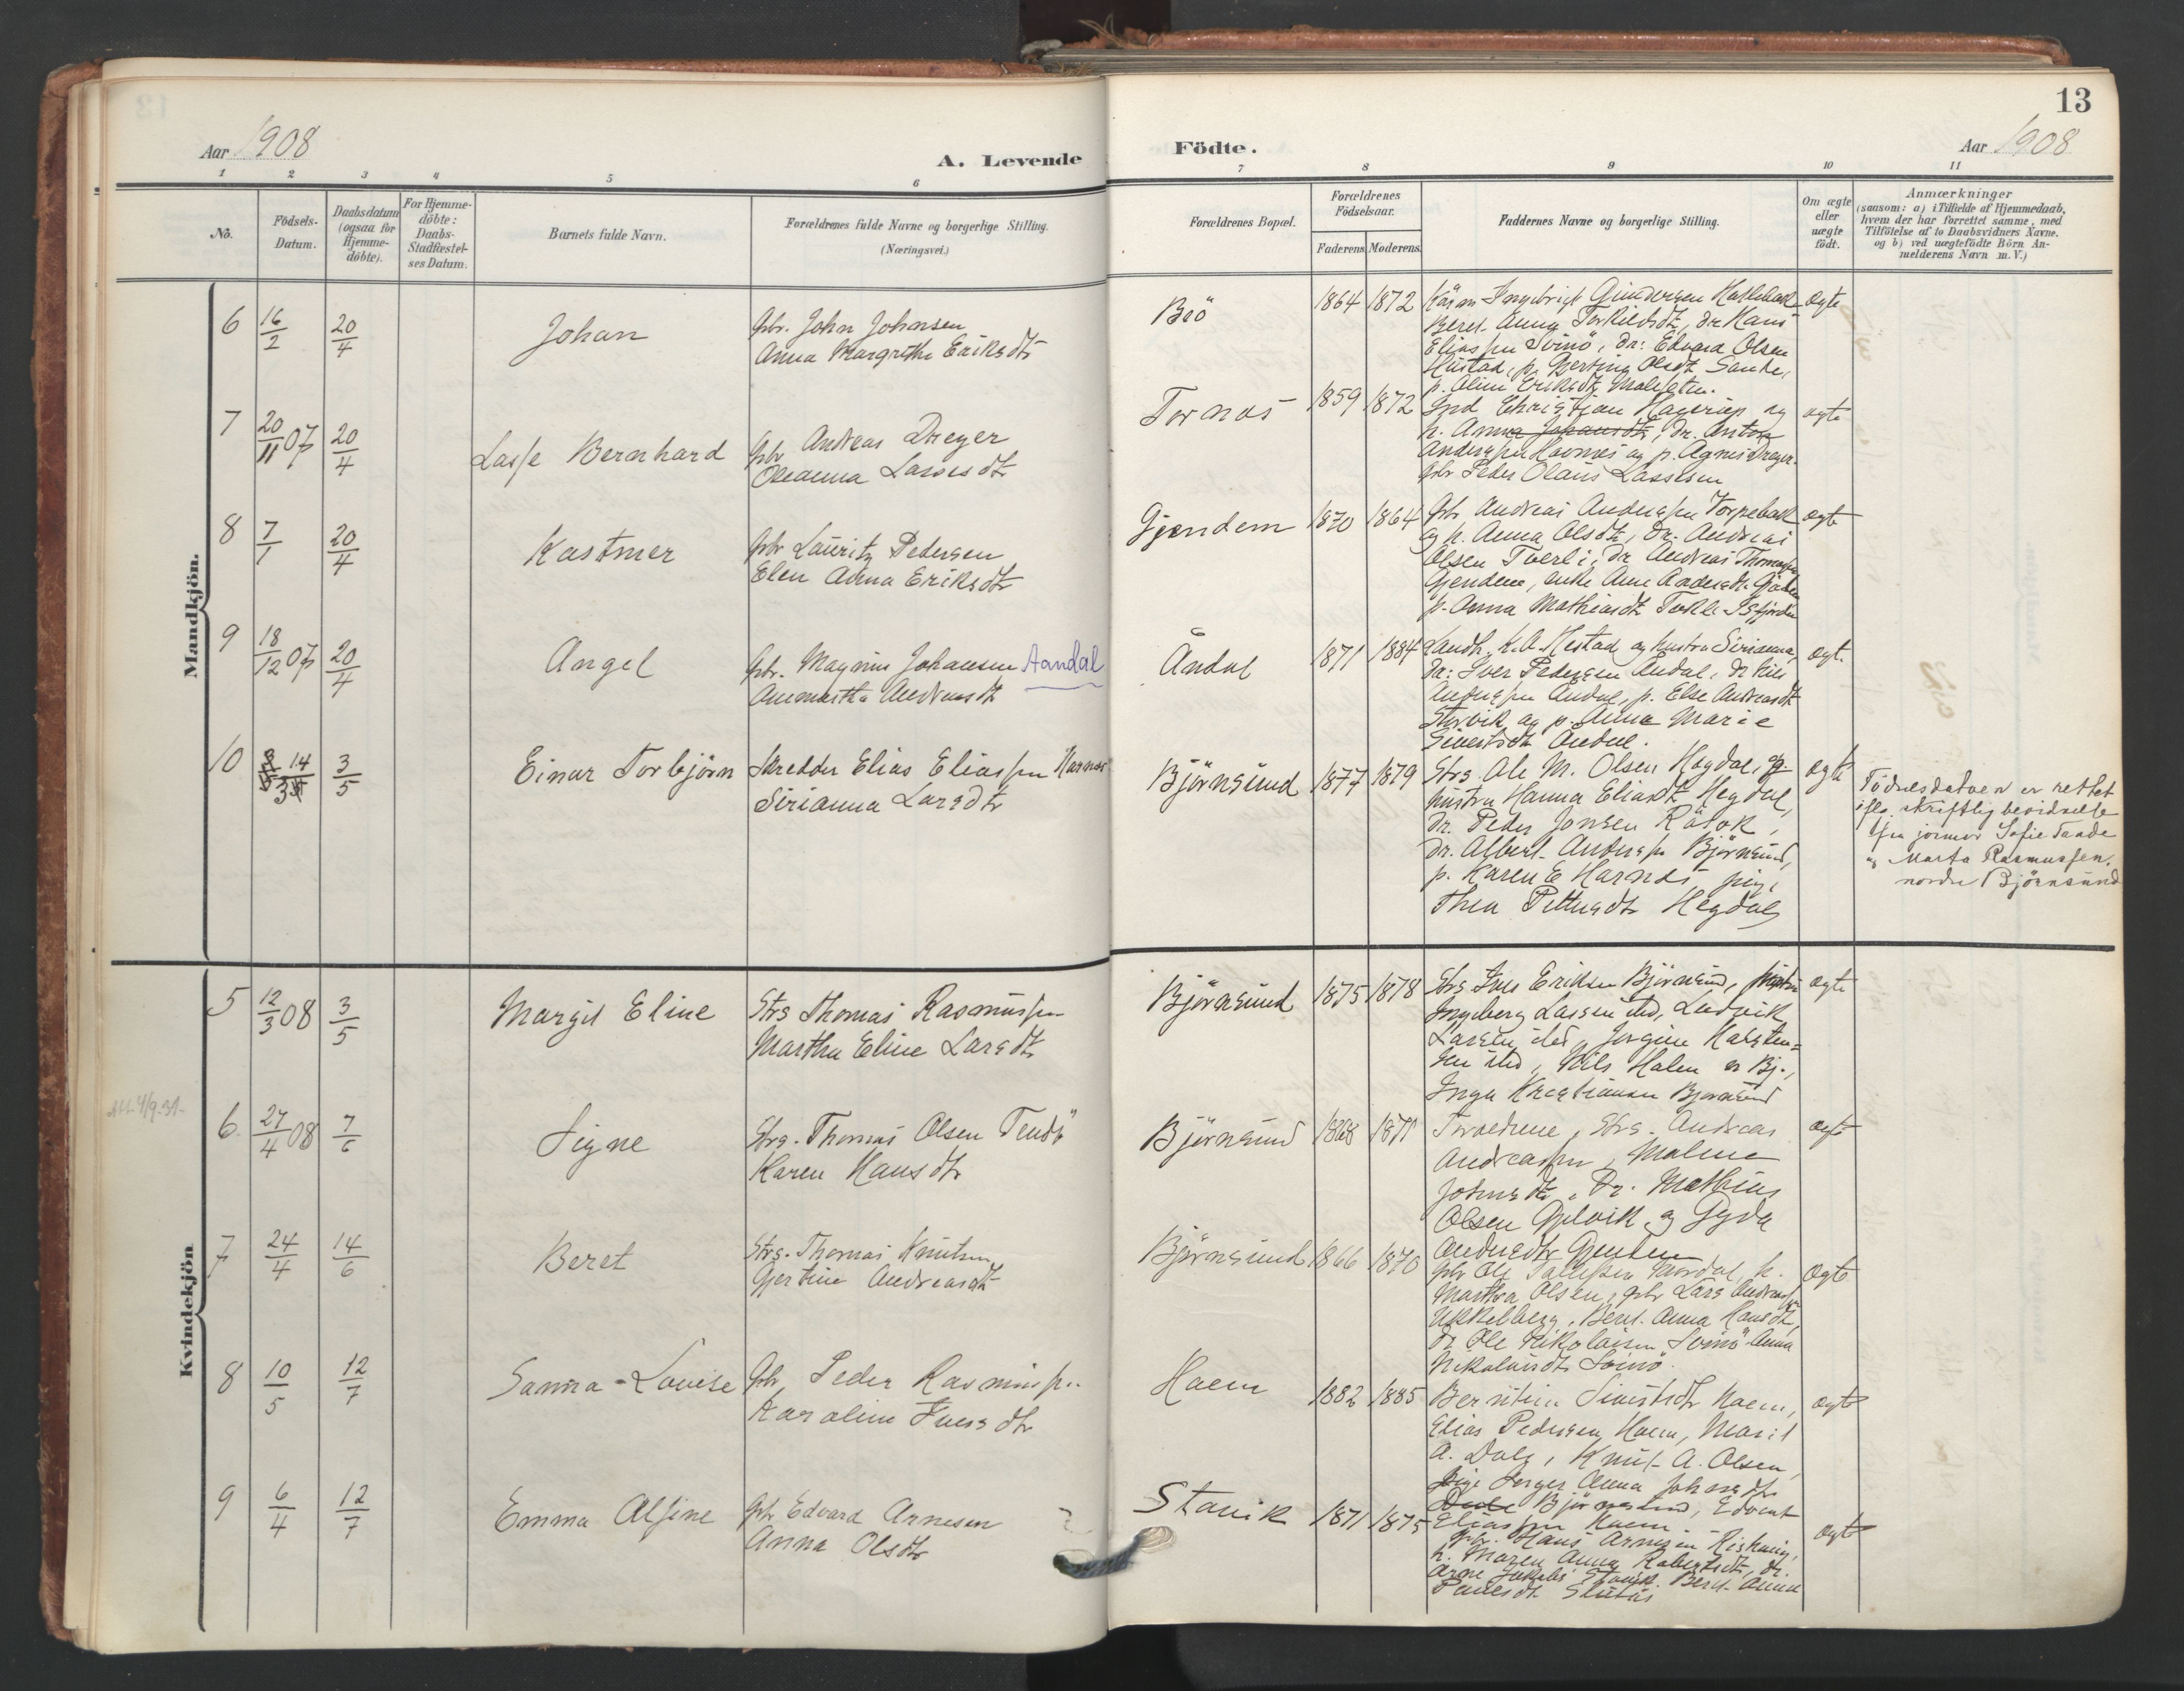 13
Aar 1908
A. Levende
Födte.
Aar 1908
1 2 3 4 5 6 7 8 9 10 11
No.
Födsels-
Datum.
Daabsdatum
(ogsaa for
Hjemme-
döbte).
For Hjemme-
döbte:
Daabs-
Stadfæstel-
ses Datum.
Barnets fulde Navn.
Forældrenes fulde Navne og borgerlige Stilling.
(Næringsvei.)
Forældrenes Bopæl.
Forældrenes
Födselsaar.
Faderens
Moderens.
Faddernes Navne og borgerlige Stilling.
Om ægte
eller
uægte
födt.
Anmærkninger
(saasom: a) i Tilfælde af Hjemmedaab,
hvem der har forrettet samme, med
Tilföielse af to Daabsvidners Navne,
og b) ved uægtefödte Börn An-
melderens Navn m. V.)
Mandkjön.
6 16/2 20/4 Johan
Gbr. John Johnsen
Anna Margrethe Eriksdtr
Bö 1864 1872
Ingebrigt Gundersen
Beret Anna Torkildsdtr, Dr. Hans
Eliassen Svinö, Dr: Edvard Olsen
Hustad, p. Bertine Olsdtr Sande,
ægte
7 20/11 07 20/4 Lasse Bernhard
Gbr Andreas Dreyer
Oleanna Lassesdtr
Tornes 1859 1872
Christian Hagerup og
h. Anna Johansdtr, Dr. Anton
Anderssen og p. Agnes Dreyer.
Gbr Peder Olaus Lassesen
ægte
8 7/1 20/4 Kastmer
Gbr Lauritz Pedersen
Elen Anna Eriksdtr
Gjendem 1870 1864
Gbr Andreas Anderssen
og h. Anna Olsdtr, Dr. Andreas
Olsen Tverli, Dr Andreas Thomassen
Gjendem, enke Ane Andersdtr
p. Anna Mathiasdtr
ægte
9 18/12 07 20/4 Angel
Gbr. Magnus Johansen Aandal
Anmartha Andreasdtr
Åndal 1871 1884
Landh. K. A. Mestad og hustru Sirianna,
Dr: Iver Pedersen Åndal, Dr Nils
Anderssen Åndal, p. Else Andreasdtr
Storvik og p. Anna Marie
Sivertsdtr Åndal.
ægte
10 14/3 3/5 Einar Torbjörn
Skredder Elias Eliassen Harnes
Sirianna Larsdtr
Björnsund 1877 1879
Strs. Ole M. Olsen Hegdal, og
hustru Hanna Eliasdtr Hegdal,
Dr. Peder Jonsen Råsok,
Dr. Albert Anderssen Björnsund,
p. Karen E Harnes, pige
Thea Pettersdtr Hegdal
ægte
Födselsdatoen er rettet
iflg. skriftlig bevidnelse
fra jormor Sofie Taade
og Marta Rasmussen.
nordre Björnsund
Kvindekjön
5 12/3 08 3/5 Margit Eline
Strs Thomas Rasmussen
Martha Eline Larsdtr
Björnsund 1875 1878
Strs Iver Eriksen Björnsund, hustru
Ingeberg Lassen itsd, Ludvik
Larsen itsd, Jorgine Karsten=
sen itsd, Nils Halen Bj.,
Inga Kristiansen Björnsund
ægte
6 27/4 08 7/6 Signe
Strs. Thomas Olsen Tendö
Karen Hansdtr
Björnsund 1868 1871
Forældrene, Strs. Andreas
Andreassen, Maline
Johnsdtr, Dr. Mathias
Olsen Gjelvik og Gyda
Andersdtr Gjendem
ægte
7 24/4 14/6 Beret
Strs. Thomas Knutsen
Gjertine Andreasdtr
Björnsund 1866 1870
Gbr Ole h.
Martha Olsen, gbr Lars Andreassen
Ukkelberg, Beret Anna Hansdtr,
Dr Ole Nikolaisen Svinö Anna
Nikolaisdtr Svinö.
ægte
8 10/5 12/7 Sanna-Lovise
Gbr, Peder Rasmussen
Karoline Iversdtr
Haem 1882 1885
Berntine Sivertsdtr Haem,
Elias Pedersen Haem, Marit
A. Dale, Knut A. Olsen,
Anna Johnsdtr
Björnsund, Edvart
Eliassen Haem.
ægte
9 6/4 12/7 Emma Alfine
Gbr Edvard Arnesen
Anna Olsdtr
Stavik 1871 1875
Gbr. Hans Arnesen
h. Maren Anna Robertsdtr, Dr.
Arne Jakobs. Stavik. Beret Anna
ægte